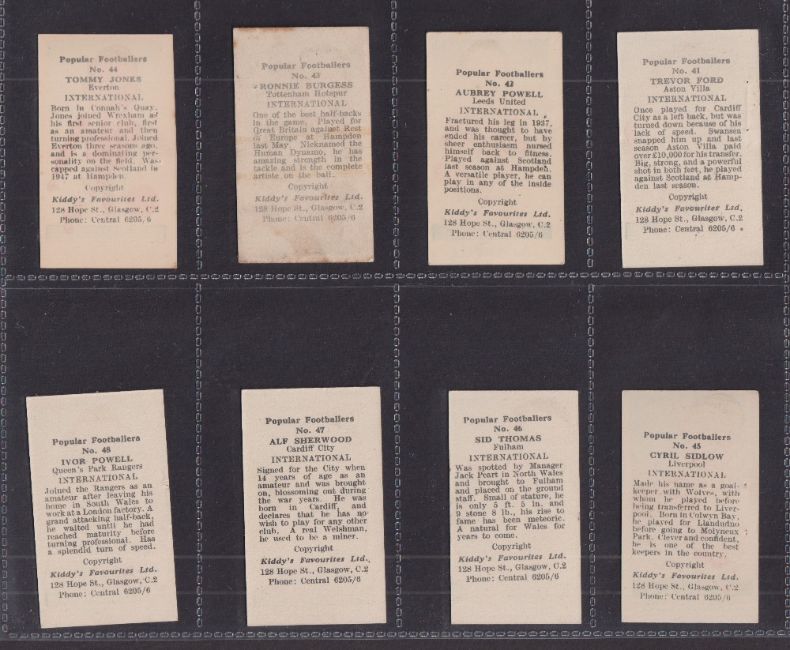 Popular Footballers
No. 44
TOMMY JONES
Everton
INTERNATIONAL
Born in Connah's Quay,
Jones joined Wrexham as
his first senior club, first
as an amateur and then
turning professional. Joined
Everton three seasons ago,
and is a dominating per-
sonality on the field. Was
capped against Scotland in
1947 at Hampden.
Copyright
Kiddy's Favourites Ltd.
128 Hope St., Glasgow, C.2
Phone: Central 6205/6
Popular Footballers
No. 43
RONNIE BURGESS
Tottenham Hotspur
INTERNATIONAL
One of the best half-backs
in the game. Played for
Great Britain against Rest
of Europe at Hampden
last May. Nicknamed the
Human Dynamo, he has
amazing strength in the
tackle and is the complete
artiste on the ball.
Copyright
Kiddy's Favourites Ltd.
128 Hope St., Glasgow, C.2
Phone: Central 6205/6
Popular Footballers
No. 42
AUBREY POWELL
Leeds United
INTERNATIONAL
Fractured his leg in 1937,
and was thought to have
ended his career, but by
sheer enthusiasm nursed
himself back to fitness.
Played against Scotland
last season at Hampden.
A versatile player, he can
play in any of the inside
positions.
Copyright
Kiddy's Favourites Ltd.
128 Hope St., Glasgow, C.2
Phone: Central 6205/6
Popular Footballers
No. 41
TREVOR FORD
Aston Villa
INTERNATIONAL
Once played for Cardiff
City as a left back, but was
turned down because of his
lack of speed. Swansea
snapped him up and last
season Aston Villa paid
over £10,000 for his transfer.
Big, strong, and a powerful
shot in both feet, he played
against Scotland at Hamp-
den last season.
Copyright
Kiddy's Favourites Ltd.
128 Hope St., Glasgow, C.2
Phone: Central 6205/6
Popular Footballers
No. 48
IVOR POWELL
Queen's Park Rangers
INTERNATIONAL
Joined the Rangers as an
amateur after leaving his
home in South Wales to
work at a London factory. A
grand attacking half-back,
he waited until he had
reached maturity before
turning professional. Has
a splendid turn of speed.
Copyright
Kiddy's Favourites Ltd.
128 Hope St., Glasgow, C.2
Phone: Central 6205/6
Popular Footballers
No. 47
ALF SHERWOOD
Cardiff City
INTERNATIONAL
Signed for the City when
14 years of age as an
amateur and was brought
on, blossoming out during
the war years. He was
born in Cardiff, and
declares that he has no
wish to play for any other
club. A real Welshman,
he used to be a miner.
Copyright
Kiddy's Favourites Ltd.
128 Hope St., Glasgow, C.2
Phone: Central 6205/6
Popular Footballers
No. 46
SID THOMAS
Fulham
INTERNATIONAL
Was spotted by Manager
Jack Peart in North Wales
and brought to Fulham
and placed on the ground
staff. Small of stature, he
is only 5 ft. 5 in. and
9 stone 8 lb., his rise to
fame has been meteoric.
A natural for Wales for
years to come.
Copyright
Kiddy's Favourites Ltd.
128 Hope St., Glasgow, C.2
Phone: Central 6205/6
Popular Footballers
No. 45
CYRIL SIDLOW
Liverpool
INTERNATIONAL
Made his name as a goal-
keeper with Wolves, with
whom he played before
being transferred to Liver-
pool. Born in Colwyn Bay,
he played for Llandudno
before going to Molyneux
Park. Clever and confident,
he is one of the best
keepers in the country.
Copyright
Kiddy's Favourites Ltd.
128 Hope St., Glasgow, C.2
Phone: Central 6205/6